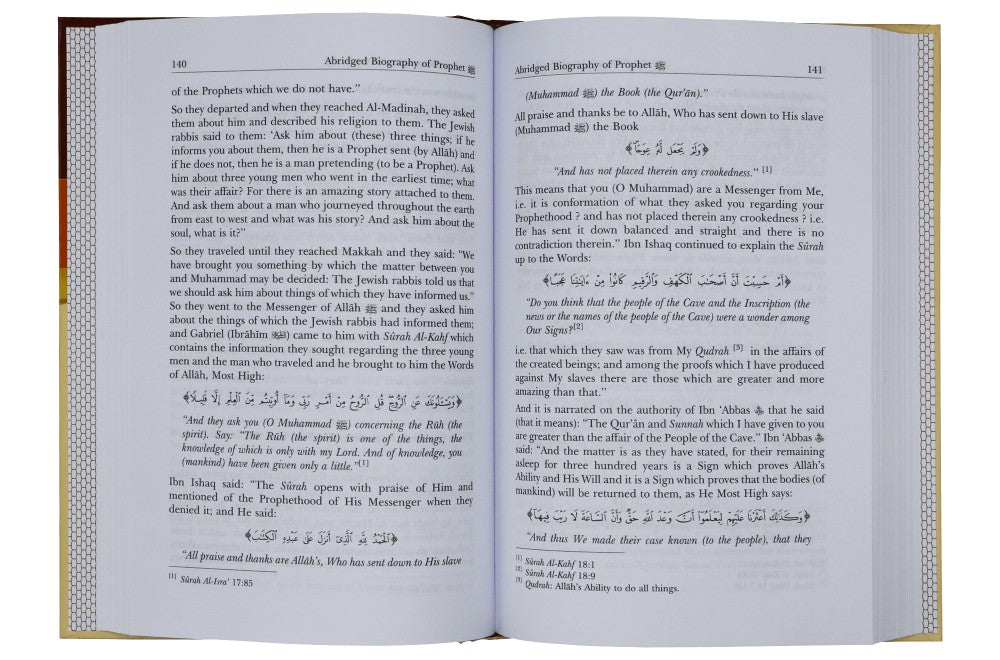 140 Abridged Biography of Prophet ﷺ
of the Prophets which we do not have.”
So they departed and when they reached Al-Madinah, they asked
them about him and described his religion to them. The Jewish
rabbis said to them: ‘Ask him about (these) three things; if he
informs you about them, then he is a Prophet sent (by Allâh) and
if he does not, then he is a man pretending (to be a Prophet). Ask
him about three young men who went in the earliest time; what
was their affair? For there is an amazing story attached to them.
And ask them about a man who journeyed throughout the earth
from east to west and what was his story? And ask him about the
soul, what is it?”
So they traveled until they reached Makkah and they said: “We
have brought you something by which the matter between you
and Muhammad may be decided: The Jewish rabbis told us that
we should ask him about things of which they have informed us.”
So they went to the Messenger of Allâh ﷺ and they asked him
about the things of which the Jewish rabbis had informed them;
and Gabriel (Ibrâhîm) came to him with Sûrah Al-Kahf which
contains the information they sought regarding the three young
men and the man who traveled and he brought to him the Words
of Allâh, Most High:
﴿وَيَسْـَٔلُونَكَ عَنِ ٱلرُّوحِ قُلِ ٱلرُّوحُ مِنْ أَمْرِ رَبِّي وَمَآ أُوتِيتُم مِّنَ ٱلْعِلْمِ إِلَّا قَلِيلًا﴾
“And they ask you (O Muhammad ﷺ) concerning the Rûh (the
spirit). Say: “The Rûh (the spirit) is one of the things, the
knowledge of which is only with my Lord. And of knowledge, you
(mankind) have been given only a little.”[1]
Ibn Ishaq said: “The Sûrah opens with praise of Him and
mentioned of the Prophethood of His Messenger when they
denied it; and He said:
﴿ٱلْحَمْدُ لِلَّهِ ٱلَّذِىٓ أَنزَلَ عَلَىٰ عَبْدِهِ ٱلْكِتَٰبَ﴾
“All praise and thanks are Allâh’s, Who has sent down to His slave
[1] Sûrah Al-Isra’ 17:85
Abridged Biography of Prophet ﷺ 141
(Muhammad ﷺ) the Book (the Qur’ân).”
All praise and thanks be to Allâh, Who has sent down to His slave
(Muhammad ﷺ) the Book
﴿وَلَمْ يَجْعَل لَّهُۥ عِوَجَا﴾
“And has not placed therein any crookedness.” [1]
This means that you (O Muhammad) are a Messenger from Me,
i.e. it is conformation of what they asked you regarding your
Prophethood ? and has not placed therein any crookedness ? i.e.
He has sent it down balanced and straight and there is no
contradiction therein.” Ibn Ishaq continued to explain the Sûrah
up to the Words:
﴿أَمْ حَسِبْتَ أَنَّ أَصْحَٰبَ ٱلْكَهْفِ وَٱلرَّقِيمِ كَانُوا۟ مِنْ ءَايَٰتِنَا عَجَبًا﴾
“Do you think that the people of the Cave and the Inscription (the
news or the names of the people of the Cave) were a wonder among
Our Signs?[2]
i.e. that which they saw was from My Qudrah [3] in the affairs of
the created beings; and among the proofs which I have produced
against My slaves there are those which are greater and more
amazing than that.”
And it is narrated on the authority of Ibn ‘Abbas that he said
(that it means): “The Qur’ân and Sunnah which I have given to you
are greater than the affair of the People of the Cave.” Ibn ‘Abbas
said: “And the matter is as they have stated, for their remaining
asleep for three hundred years is a Sign which proves Allâh’s
Ability and His Will and it is a Sign which proves that the bodies (of
mankind) will be returned to them, as He Most High says:
﴿وَكَذَٰلِكَ أَعْثَرْنَا عَلَيْهِمْ لِيَعْلَمُوٓا۟ أَنَّ وَعْدَ ٱللَّهِ حَقٌّ وَأَنَّ ٱلسَّاعَةَ لَا رَيْبَ فِيهَآ﴾
“And thus We made their case known (to the people), that they
[1] Sûrah Al-Kahf 18:1
[2] Sûrah Al-Kahf 18:9
[3] Qudrah: Allâh’s Ability to do all things.